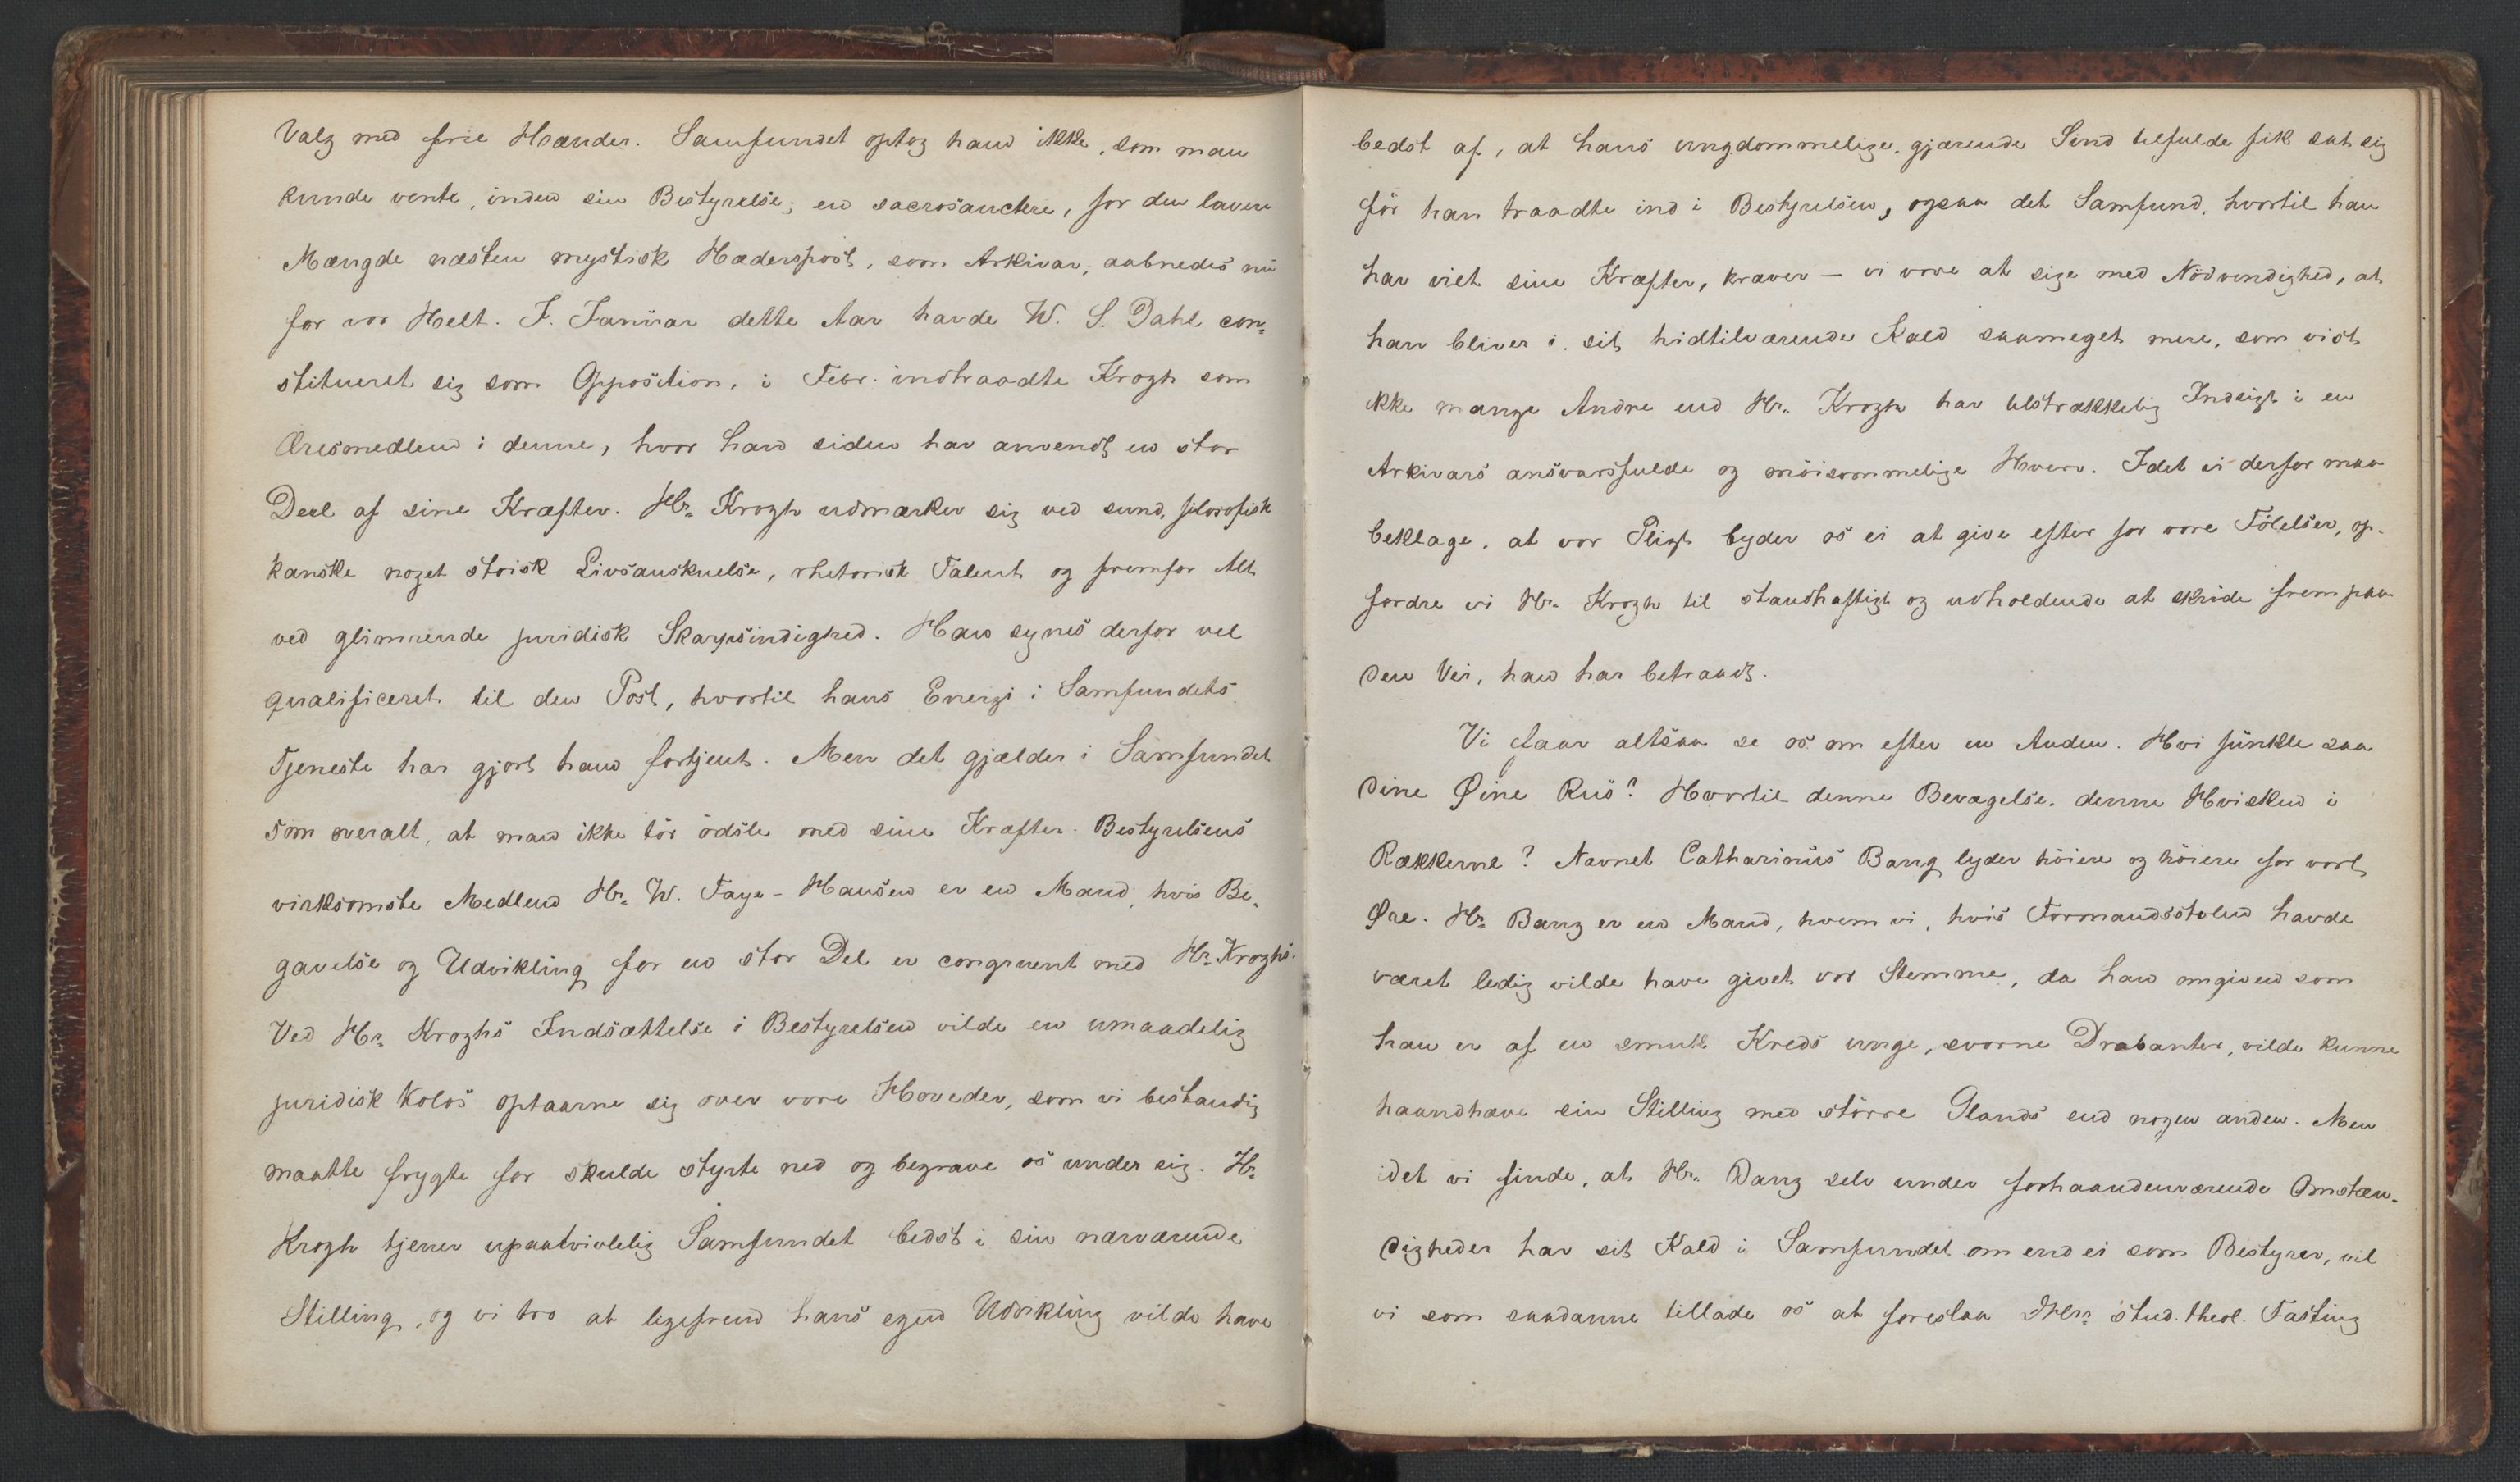 Valg med frie Hænder. Samfundet optog ham ikke, som man
kunde vente, inden sin Bestyrelse; en sacrosanctere, for den lavere
Mængde næsten mystisk Hæderspost, som Arkivar, aabnedes nu
for vor Helt. I. Januar dette Aar havde W. S. Dahl con-
stitueret sig som Opposition, i Febr. indtraadte Krogh som
Æresmedlem i denne, hvor han siden har anvendt en stor
Deel af sine Kræfter. Hr. Krogh udmærker sig ved sund, filosofisk
kanske noget stoisk Livsanskuelse, rhetorisk Talent og fremfor Alt
ved glimrende juridisk Skarpsindighed. Han synes derfor vel
qualificeret til den Post, hvortil hans Energi i Samfundets
Tjeneste har gjort ham fortjent. Men det gjælder i Samfundet
som overalt, at man ikke tör ödsle med sine Kræfter. Bestyrelsens
virksomste Medlem Hr. W. Faye-Hansen er en Mand, hvis Be-
gavelse og Udvikling for en stor Del er congruent med Hr. Kroghs.
Ved Hr. Kroghs Indsættelse i Bestyrelsen vilde en umaadelig
juridisk Kolos optaarne sig over vore Hoveder, som vi bestandig
maatte frygte for skulde styrte ned og begrave os under sig. Hr.
Krogh tjener upaatvivlelig Samfundet bedst i sin nærværende
Stilling, og vi tro at ligefrem hans egen Udvikling vilde have
bedst af, at hans ungdommelige, gjærende Sind tilfulde fik sat sig
før han traadte ind i Bestyrelsen, ogsaa det Samfund, hvortil han
har viet sine Kræfter, kræver – vi vove at sige med Nödvendighed, at
han bliver i sit hidtilværende Kald saameget mere, som vist
ikke mange Andre end Hr. Krogh har tilstrækkelig Indsigt i en
Arkivars ansvarsfulde og möisommelige Hverv. Idet vi derfor maa
beklage, at vor Pligt byder os ei at give efter for vore Fölelser, op-
fordre vi Hr. Krogh til standhaftigt og udholdende at skride frem paa
den Vei, han har betraadt.
Vi faar altsaa se os om efter en Anden. Hvi funkle saa
dine Øine Rus? Hvortil denne Bevægelse, denne Hvisken i
Rækkerne? Navnet Catharinus Bang lyder höiere og höiere for vort
Øre. Hr. Bang er en Mand, hvem vi, hvis Formandsstolen havde
været ledig vilde have givet vor Stemme, da han omgiven som
han er af en smuk Kreds unge, svorne Drabanter, vilde kunne
haandhæve sin Stilling med större Glands end nogen anden. Men
idet vi finde, at Hr. Bang selv under forhaandenværende Omstæn-
digheder har sit Kald i Samfundet om end ei som Bestyrer, vil
vi som saadanne tillade os at foreslaa Hrr. stud. theol. Fasting